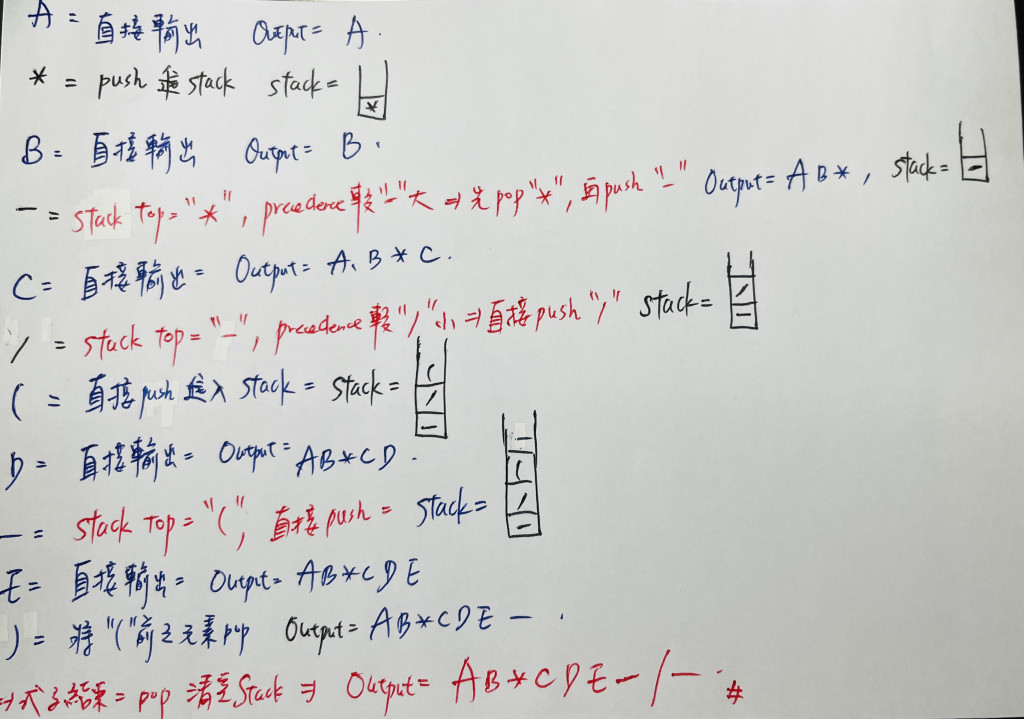 A = 直接輸出 Output = A.
* = push 進 stack stack = *
B = 直接輸出 Output = B.
- = stack top = "*", precedence 較"-"大 ⇒ 先pop "*", 再push "-" Output = AB*, stack = -
C = 直接輸出 = Output = A、B * C.
/ = stack top = "-", precedence 較"/"小 ⇒ 直接push "/" stack = / -
( = 直接push 進入 stack = stack = ( / -
D = 直接輸出 = Output = AB*CD.
- = stack top = "(", 直接push = stack = - ( / -
E = 直接輸出 = Output = AB*CDE
) = 將"("前之元素pop Output = AB*CDE-.
⇒ 式子結束 = pop 清空Stack ⇒ Output = AB*CDE-/-. #